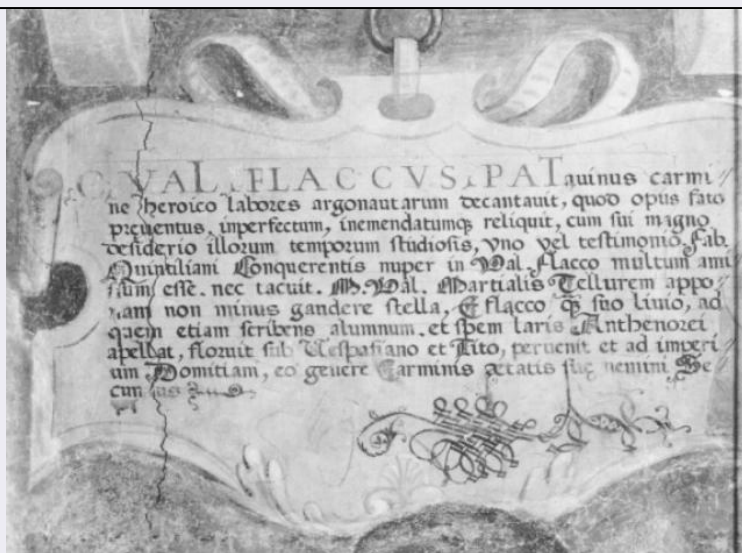 C. VAL. FLACCVS. PATauinus carmi
ne heroico labores argonautarum decantauit, quod opus fato
preuentus, inperfectum, inemendatumq; reliquit, cum sui magno
desiderio illorum temporum studiosis, vno vel testimonio. Fab.
Quintiliani Conquerentis nuper in Val. flacco multum ami
ssum esse. nec tacuit. M. Val. Martialis Tellurem appo
nam non minus gandere stella, E flacco q̃ suo liuio, ad
quem etiam scribens alumnum. et spem laris Anthenorei
apellat, floruit sub Vespasiano et Tito, peruenit et ad imperi
um Domitiam, eo genere Carminis ætatis suę nemini Se
cun